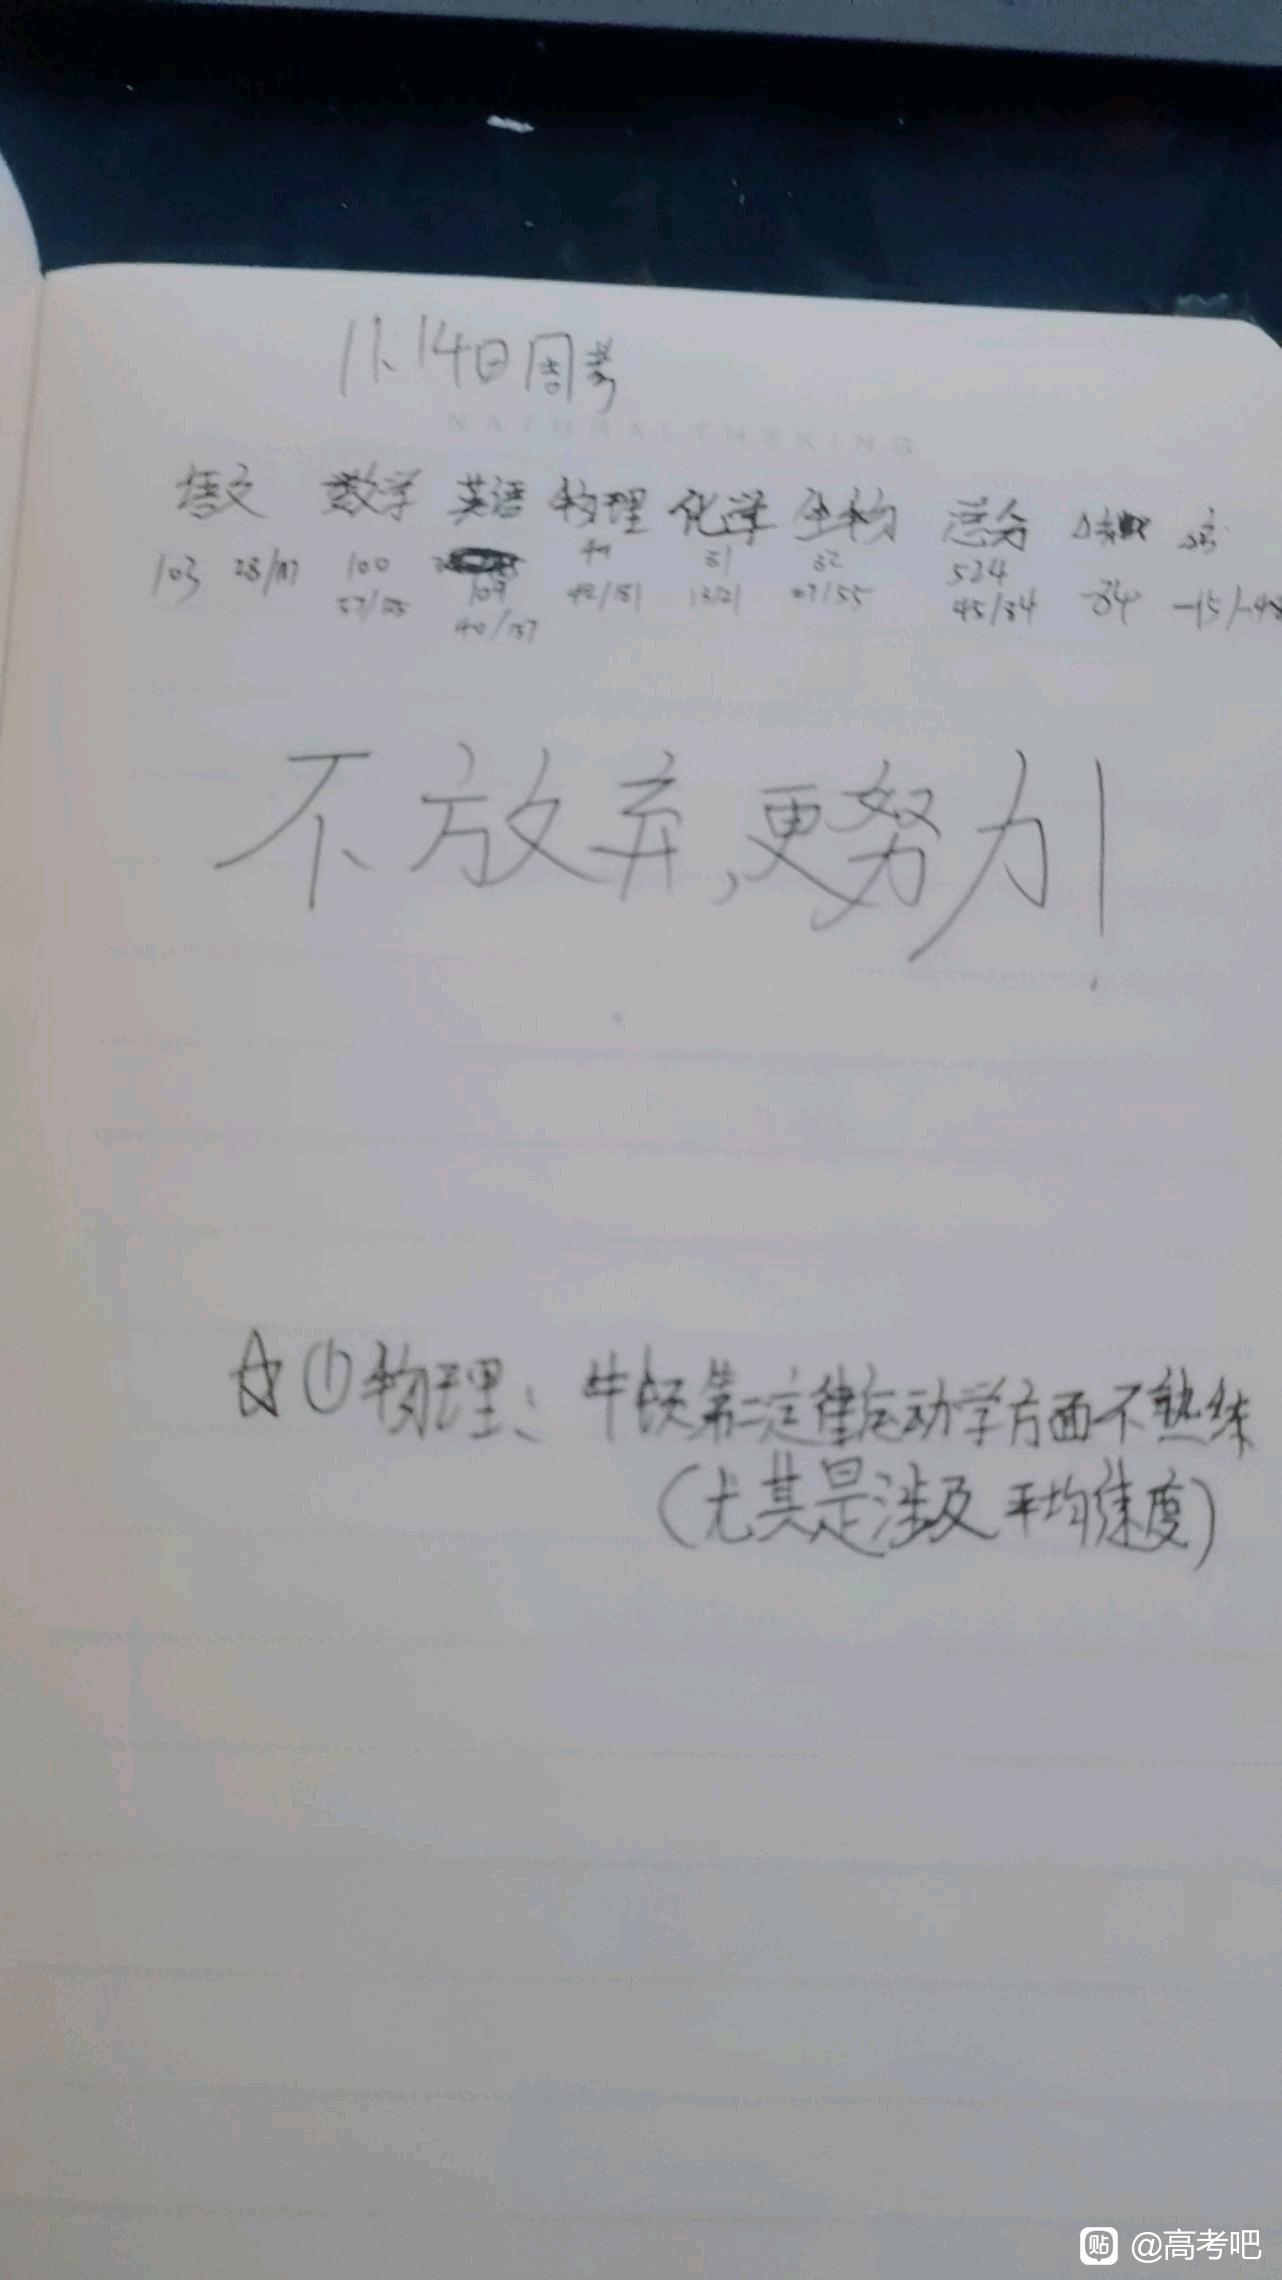 11.14日周考
NATURALTHEKING
语文 数学 英语 物理 化学 生物 总分
103 28/117 100 109 49 81 82 524
57/125 40/137 42/151 13/21 27/55 45/34 -34 -15/-48
不放弃,更努力!
☆①物理: 牛顿第二定律运动学方面不熟练
(尤其是涉及平均速度)
贴 @高考吧